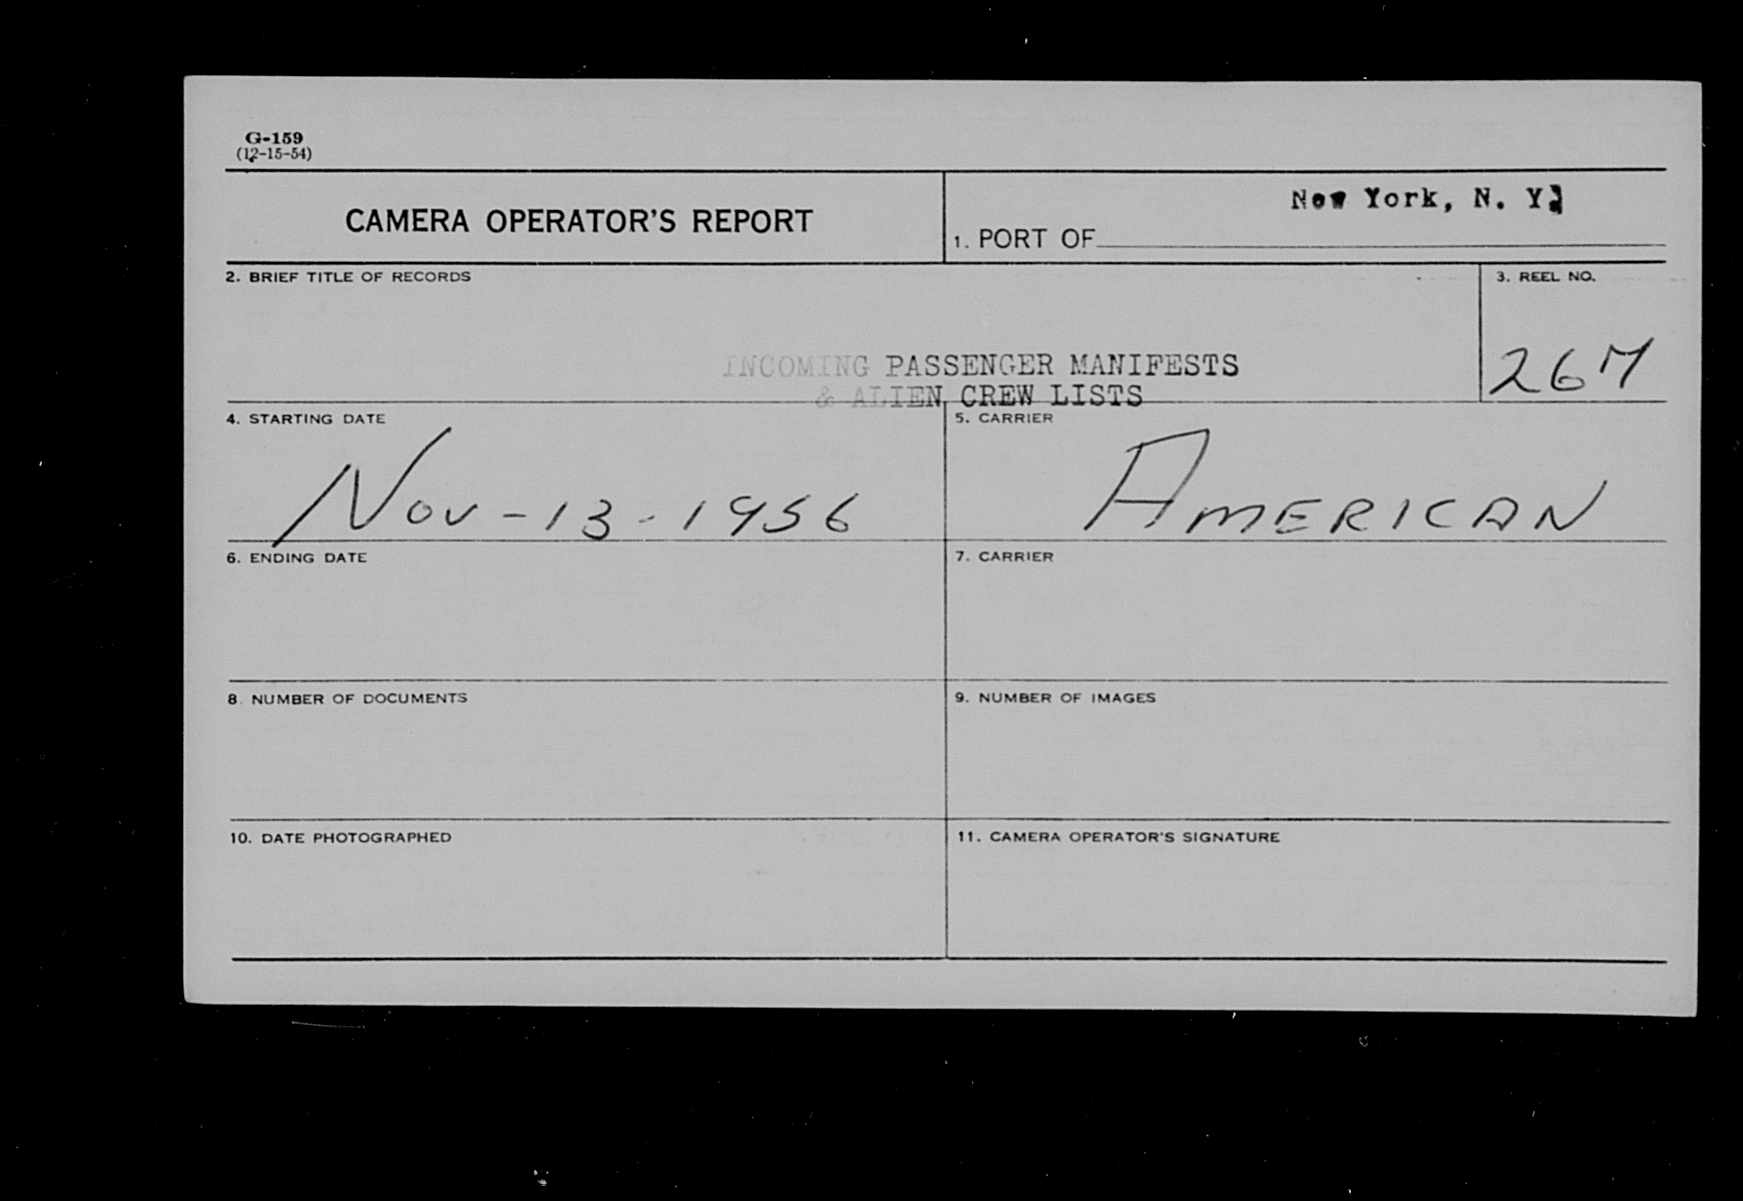 G-159
(12-15-54)
CAMERA OPERATOR'S REPORT
1. PORT OF New York, N. Y.
2. BRIEF TITLE OF RECORDS
INCOMING PASSENGER MANIFESTS
& ALIEN CREW LISTS
3. REEL NO.
267
4. STARTING DATE
Nov-13-1956
5. CARRIER
AMERICAN
6. ENDING DATE
7. CARRIER
8. NUMBER OF DOCUMENTS
9. NUMBER OF IMAGES
10. DATE PHOTOGRAPHED
11. CAMERA OPERATOR'S SIGNATURE